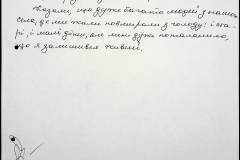 Казали, що дуже багато людей з нашого
села, де ми жили повмирали з голоду: і ста-
рі, і малі діти, ал мені дуже поталанило,
що я залишився живий.